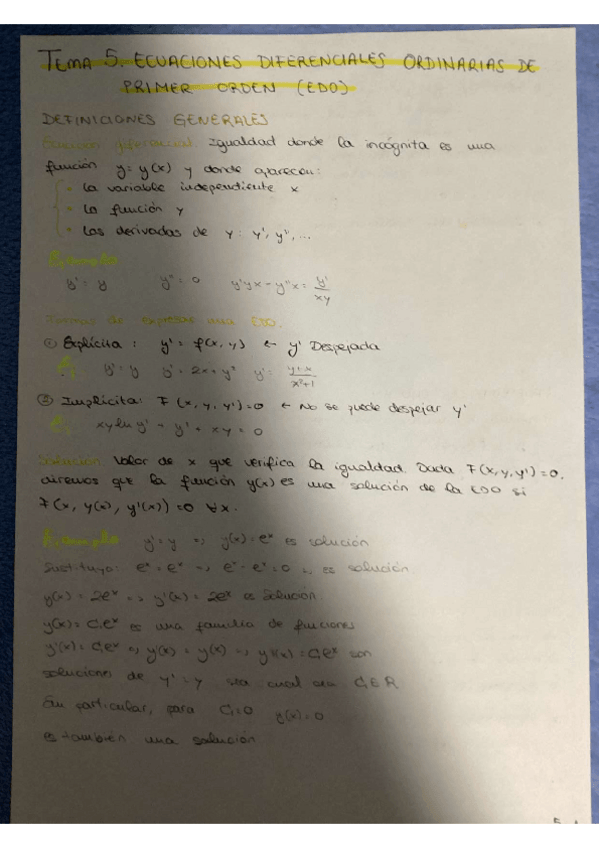 TEMA 5. ECUACIONES DIFERENCIALES ORDINARIAS DE
PRIMER ORDEN (EDO)
DEFINICIONES GENERALES
Ecuación diferencial. Igualdad donde la incógnita es una
función y = y(x) y donde aparecen:
• La variable independiente x
• La función y
• Las derivadas de y: y', y'', ...
Ejemplo
y' = y y'' = 0 y'yx - y''x = y'/xy
Formas de expresar una EDO.
① Explícita: y' = f(x, y) ← y' Despejada
y' = y y' = 2x + y² y' = y+x/x²+1
② Implícita: F(x, y, y') = 0 ← No se puede despejar y'
xy ln y' - y' + xy = 0
Solución Valor de x que verifica la igualdad. Dada F(x, y, y') = 0.
diremos que la función y(x) es una solución de la EDO si
F(x, y(x), y'(x)) = 0 ∀x.
Ejemplo y' = y => y(x) = eˣ es solución
Sustituyo: eˣ = eˣ => eˣ - eˣ = 0 => es solución
y(x) = 2eˣ => y'(x) = 2eˣ es solución
y(x) = C₁eˣ es una familia de funciones
y'(x) = C₁eˣ => y(x) = y(x) => y'(x) = C₁eˣ son
soluciones de y' = y sea cual sea C₁ ∈ R
En particular, para C₁ = 0 y(x) = 0
es también una solución